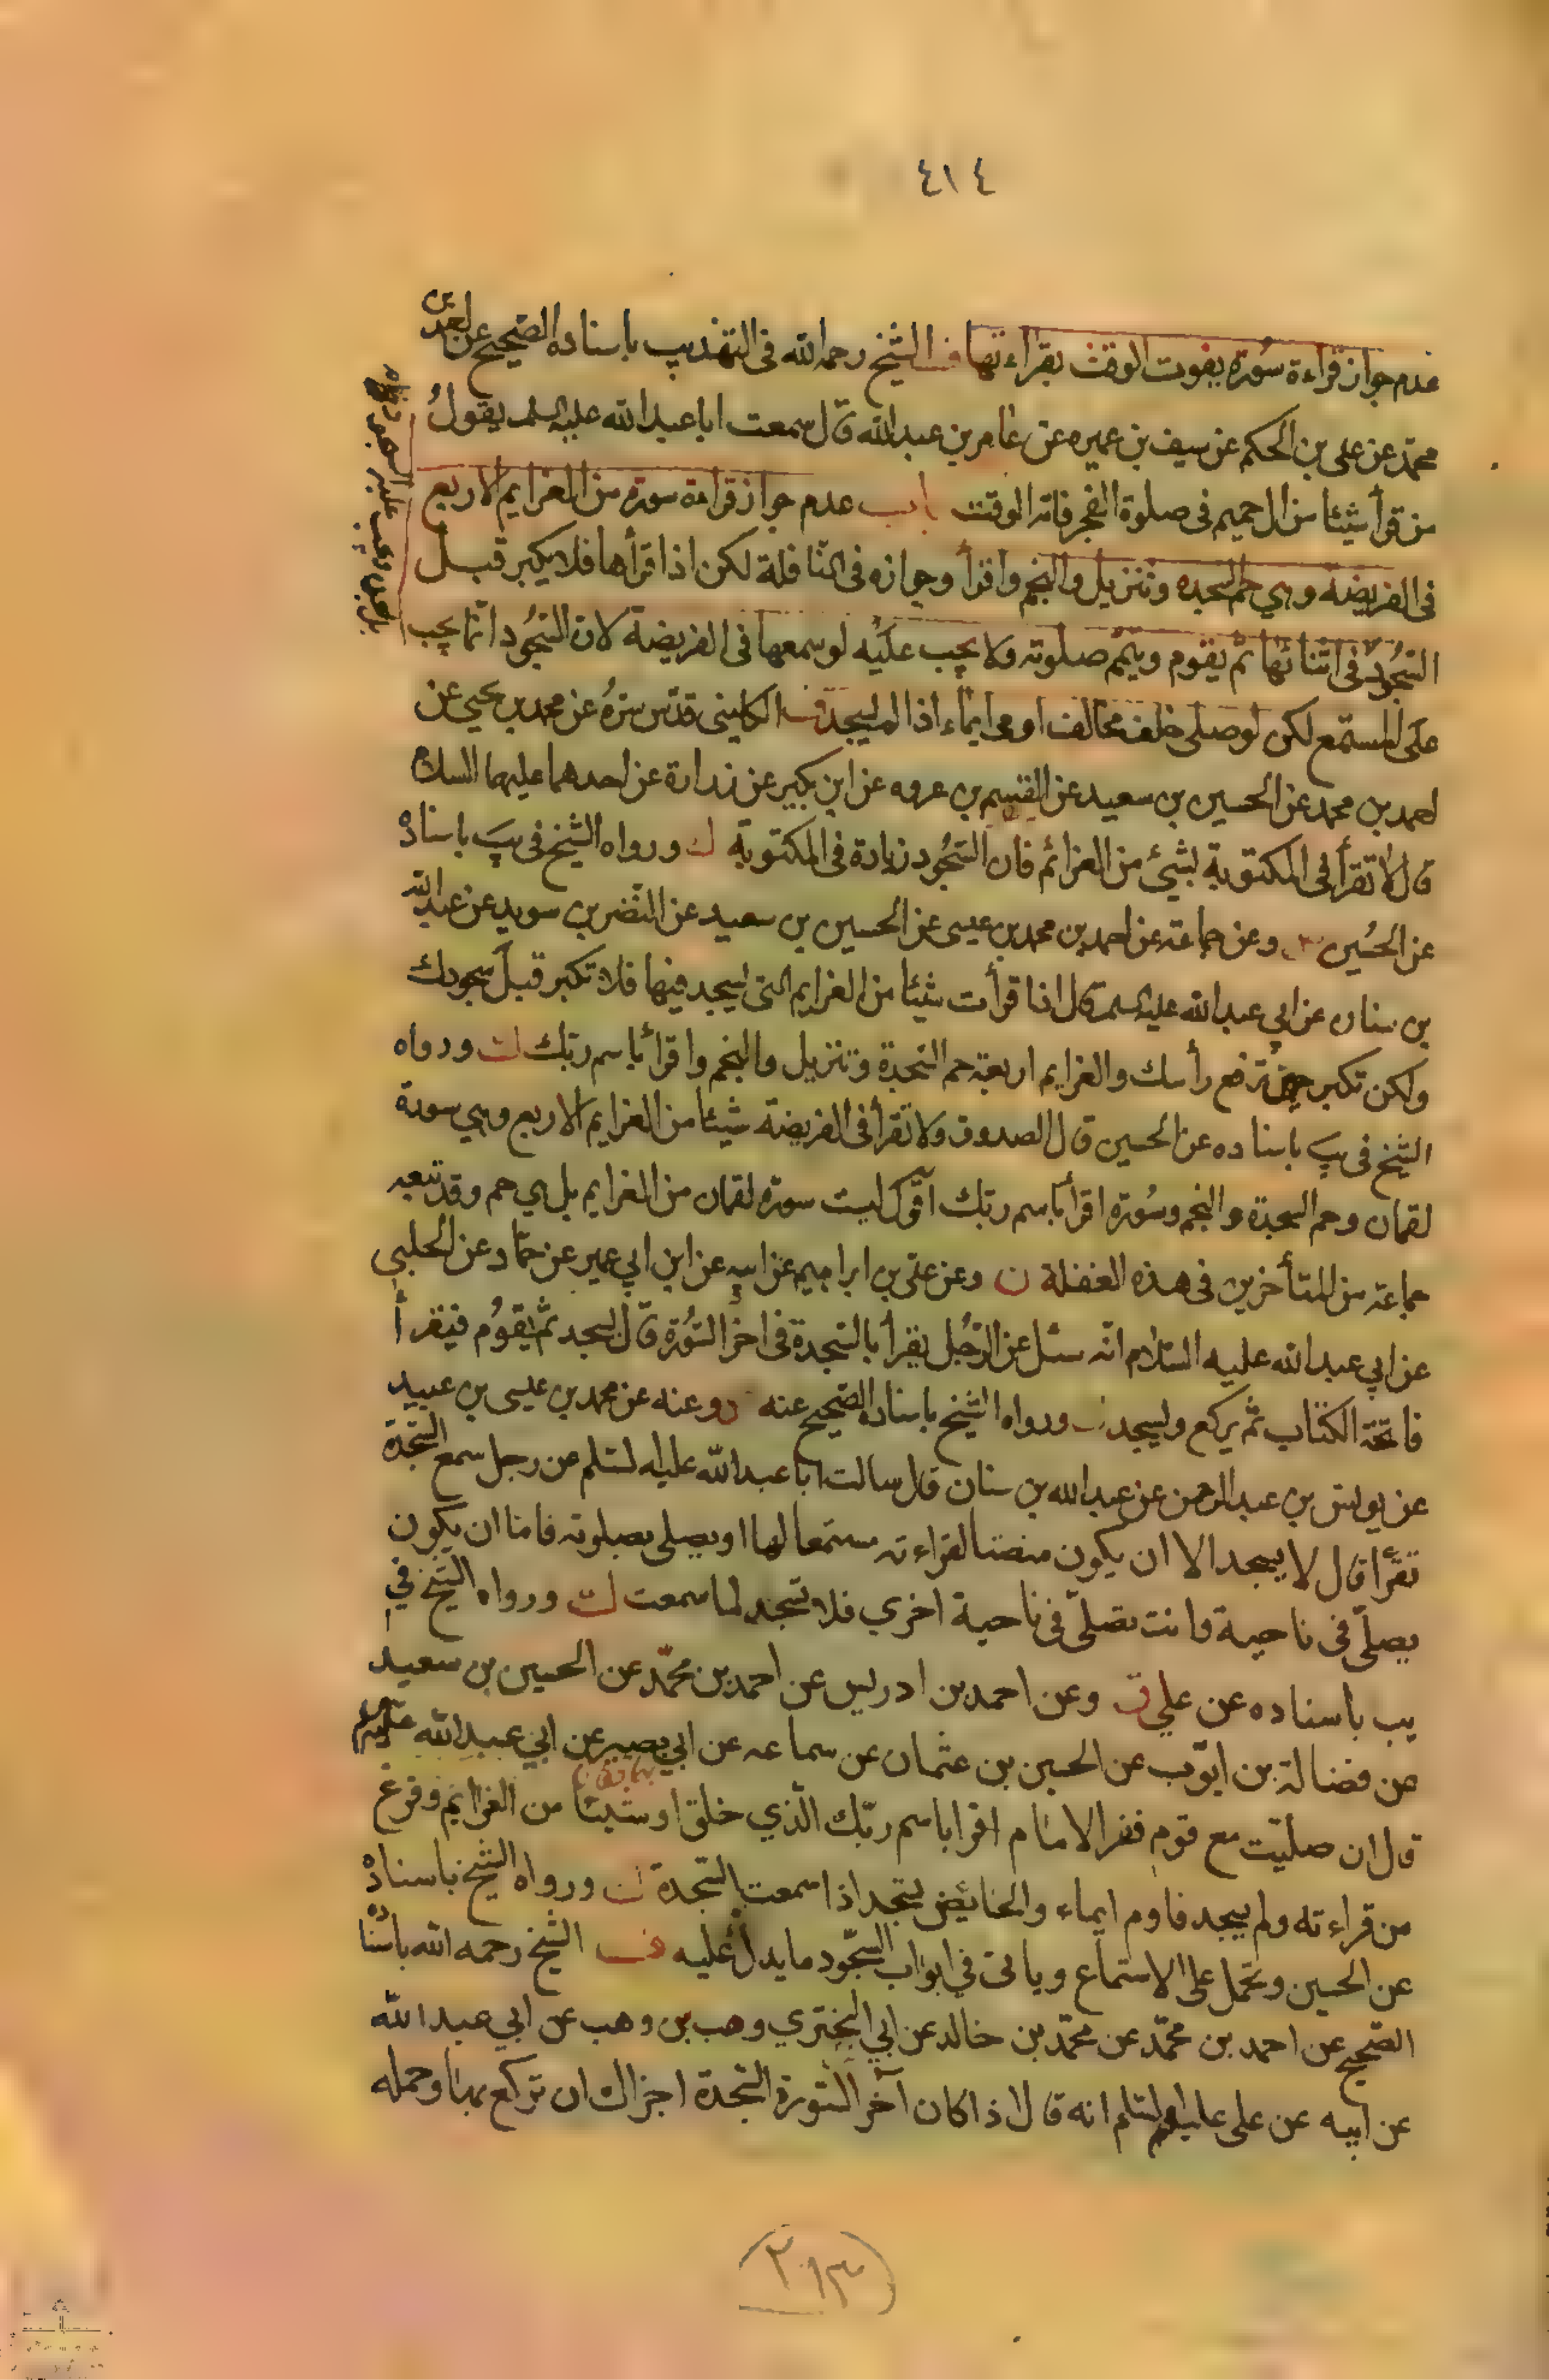 ٤١٤
عدم جواز قراءة سورة يفوت الوقت بقراءتها الشيخ رحمه الله فى التهذيب باسناده الصحيح عن احمد بن
محمد عن على بن الحكم عن سيف بن عميره عن عامر بن عبد الله قال سمعت ابا عبد الله عليه السلم يقول
من قرأ شيئا من ال حميم فى صلوة الفجر فاته الوقت باب عدم جواز قراءة سورة من العزايم الاربع
فى الفريضة وهي حم السجده وتنزيل والنجم واقرأ وجوازه فى النافلة لكن اذا قرأها فلا يكبر قبل
السجود فى اثنائها ثم يقوم ويتمم صلوته ولا يجب عليه لو سمعها فى الفريضة لان السجود انما يجب
على المستمع لكن لو صلى خلف مخالف اومى ايماء اذا لم يسجد الكلينى قدس سره عن محمد بن يحيى عن
احمد بن محمد عن الحسين بن سعيد عن القسم بن عروه عن ابن بكير عن زرارة عن احدهما عليهما السلام
قال لا تقرأ فى المكتوبة بشئ من العزائم فان السجود زيادة فى المكتوبة ورواه الشيخ فى يب باسناده
عن الحسين وعن جماعته عن احمد بن محمد بن عيسى عن الحسين بن سعيد عن النضر بن سويد عن عبد الله
بن سنان عن ابي عبد الله عليه السلم قال اذا قرأت شيئا من العزايم التى يسجد فيها فلا تكبر قبل سجودك
ولكن تكبر حين ترفع رأسك والعزايم اربعة حم السجدة وتنزيل والنجم واقرأ باسم ربك ورواه
الشيخ فى يب باسناده عن الحسين قال الصدوق ولا تقرأ فى الفريضة شيئا من العزايم الاربع وهي سورة
لقمان وحم السجدة والنجم وسورة اقرأ باسم ربك اقول ليت سورة لقمان من العزايم بل هي حم وقد تبعه
جماعته من المتأخرين فى هذه الغفلة ن وعن على بن ابراهيم عن ابيه عن ابن ابي عمير عن حماد عن الحلبي
عن ابي عبد الله عليه السلام انه سئل عن الرجل يقرأ بالسجدة فى اخر السورة قال يسجد ثم يقوم فيقرأ
فاتحة الكتاب ثم يركع ويسجد ورواه الشيخ باسناده الصحيح عنه وعنه عن محمد بن عيسى بن عبيد
عن يونس بن عبد الرحمن عن عبد الله بن سنان قال سالت ابا عبد الله عليه السلم عن رجل سمع السجدة
تقرأ قال لا يسجد الا ان يكون منصتا لقراءته مستمعا لها او يصلى بصلوته فاما ان يكون
يصلى فى ناحية وانت تصلى فى ناحية اخري فلا تسجد لما سمعت ورواه الشيخ في
يب باسناده عن علي وعن احمد بن ادريس عن احمد بن محمد عن الحسين بن سعيد
عن فضالة بن ايوب عن الحسين بن عثمان عن سماعه عن ابي بصير عن ابي عبد الله
قال ان صليت مع قوم فقرا الامام اقرا باسم ربك الذي خلق او شيئا من العزايم وفرغ
من قراءته ولم يسجد فاوم ايماء والحائض تسجد اذا سمعت السجدة ورواه الشيخ باسناده
عن الحسين وتحمل على الاستماع وياتى في ابواب السجود ما يدل عليه الشيخ رحمه الله باسناده
الصحيح عن احمد بن محمد عن محمد بن خالد عن ابي البختري وهب بن وهب عن ابي عبد الله
عن ابيه عن على عليهم السلم انه قال اذا كان آخر السورة السجدة اجزاك ان تركع بها وحمله
٢٠١٣